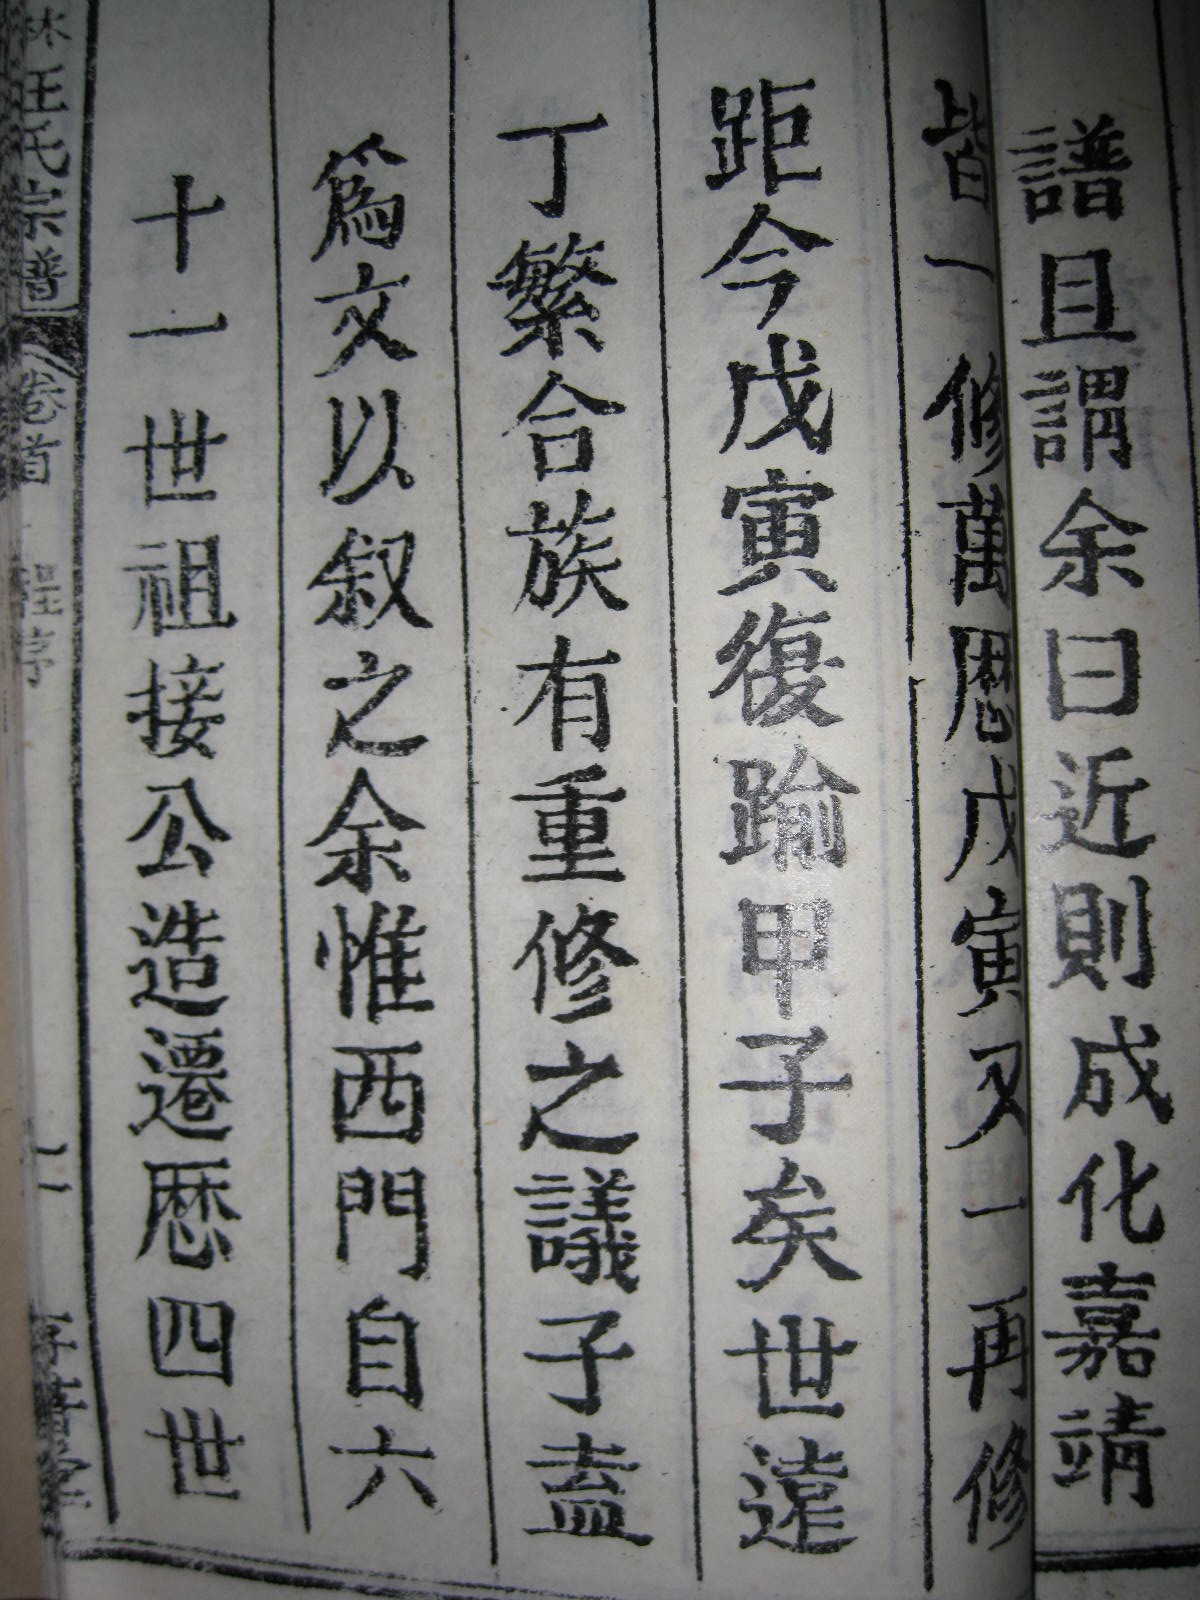 譜且謂余曰近則成化嘉靖
皆一修萬厯戊寅又一再修
距今戊寅復踰甲子矣世遠
丁繁合族有重修之議子盍
爲文以叙之余惟西門自六
十一世祖接公造遷厯四世
林汪氏宗譜 卷首 程序 二